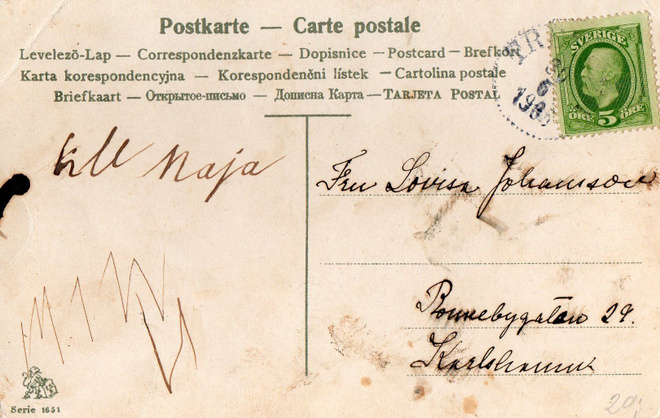 Postkarte — Carte postale
Levelező-Lap — Correspondenzkarte — Dopisnice — Postcard — Brefkort
Karta korespondencyjna — Korespondenčni lístek — Cartolina postale
Briefkaart — Открытое-письмо — Дописна Карта — TARJETA POSTAL
SVERIGE
5
ÖRE ÖRE
till Maja
Fru Lovisa Johansson
Ronnebygatan 29.
Karlshamn
Serie 1651